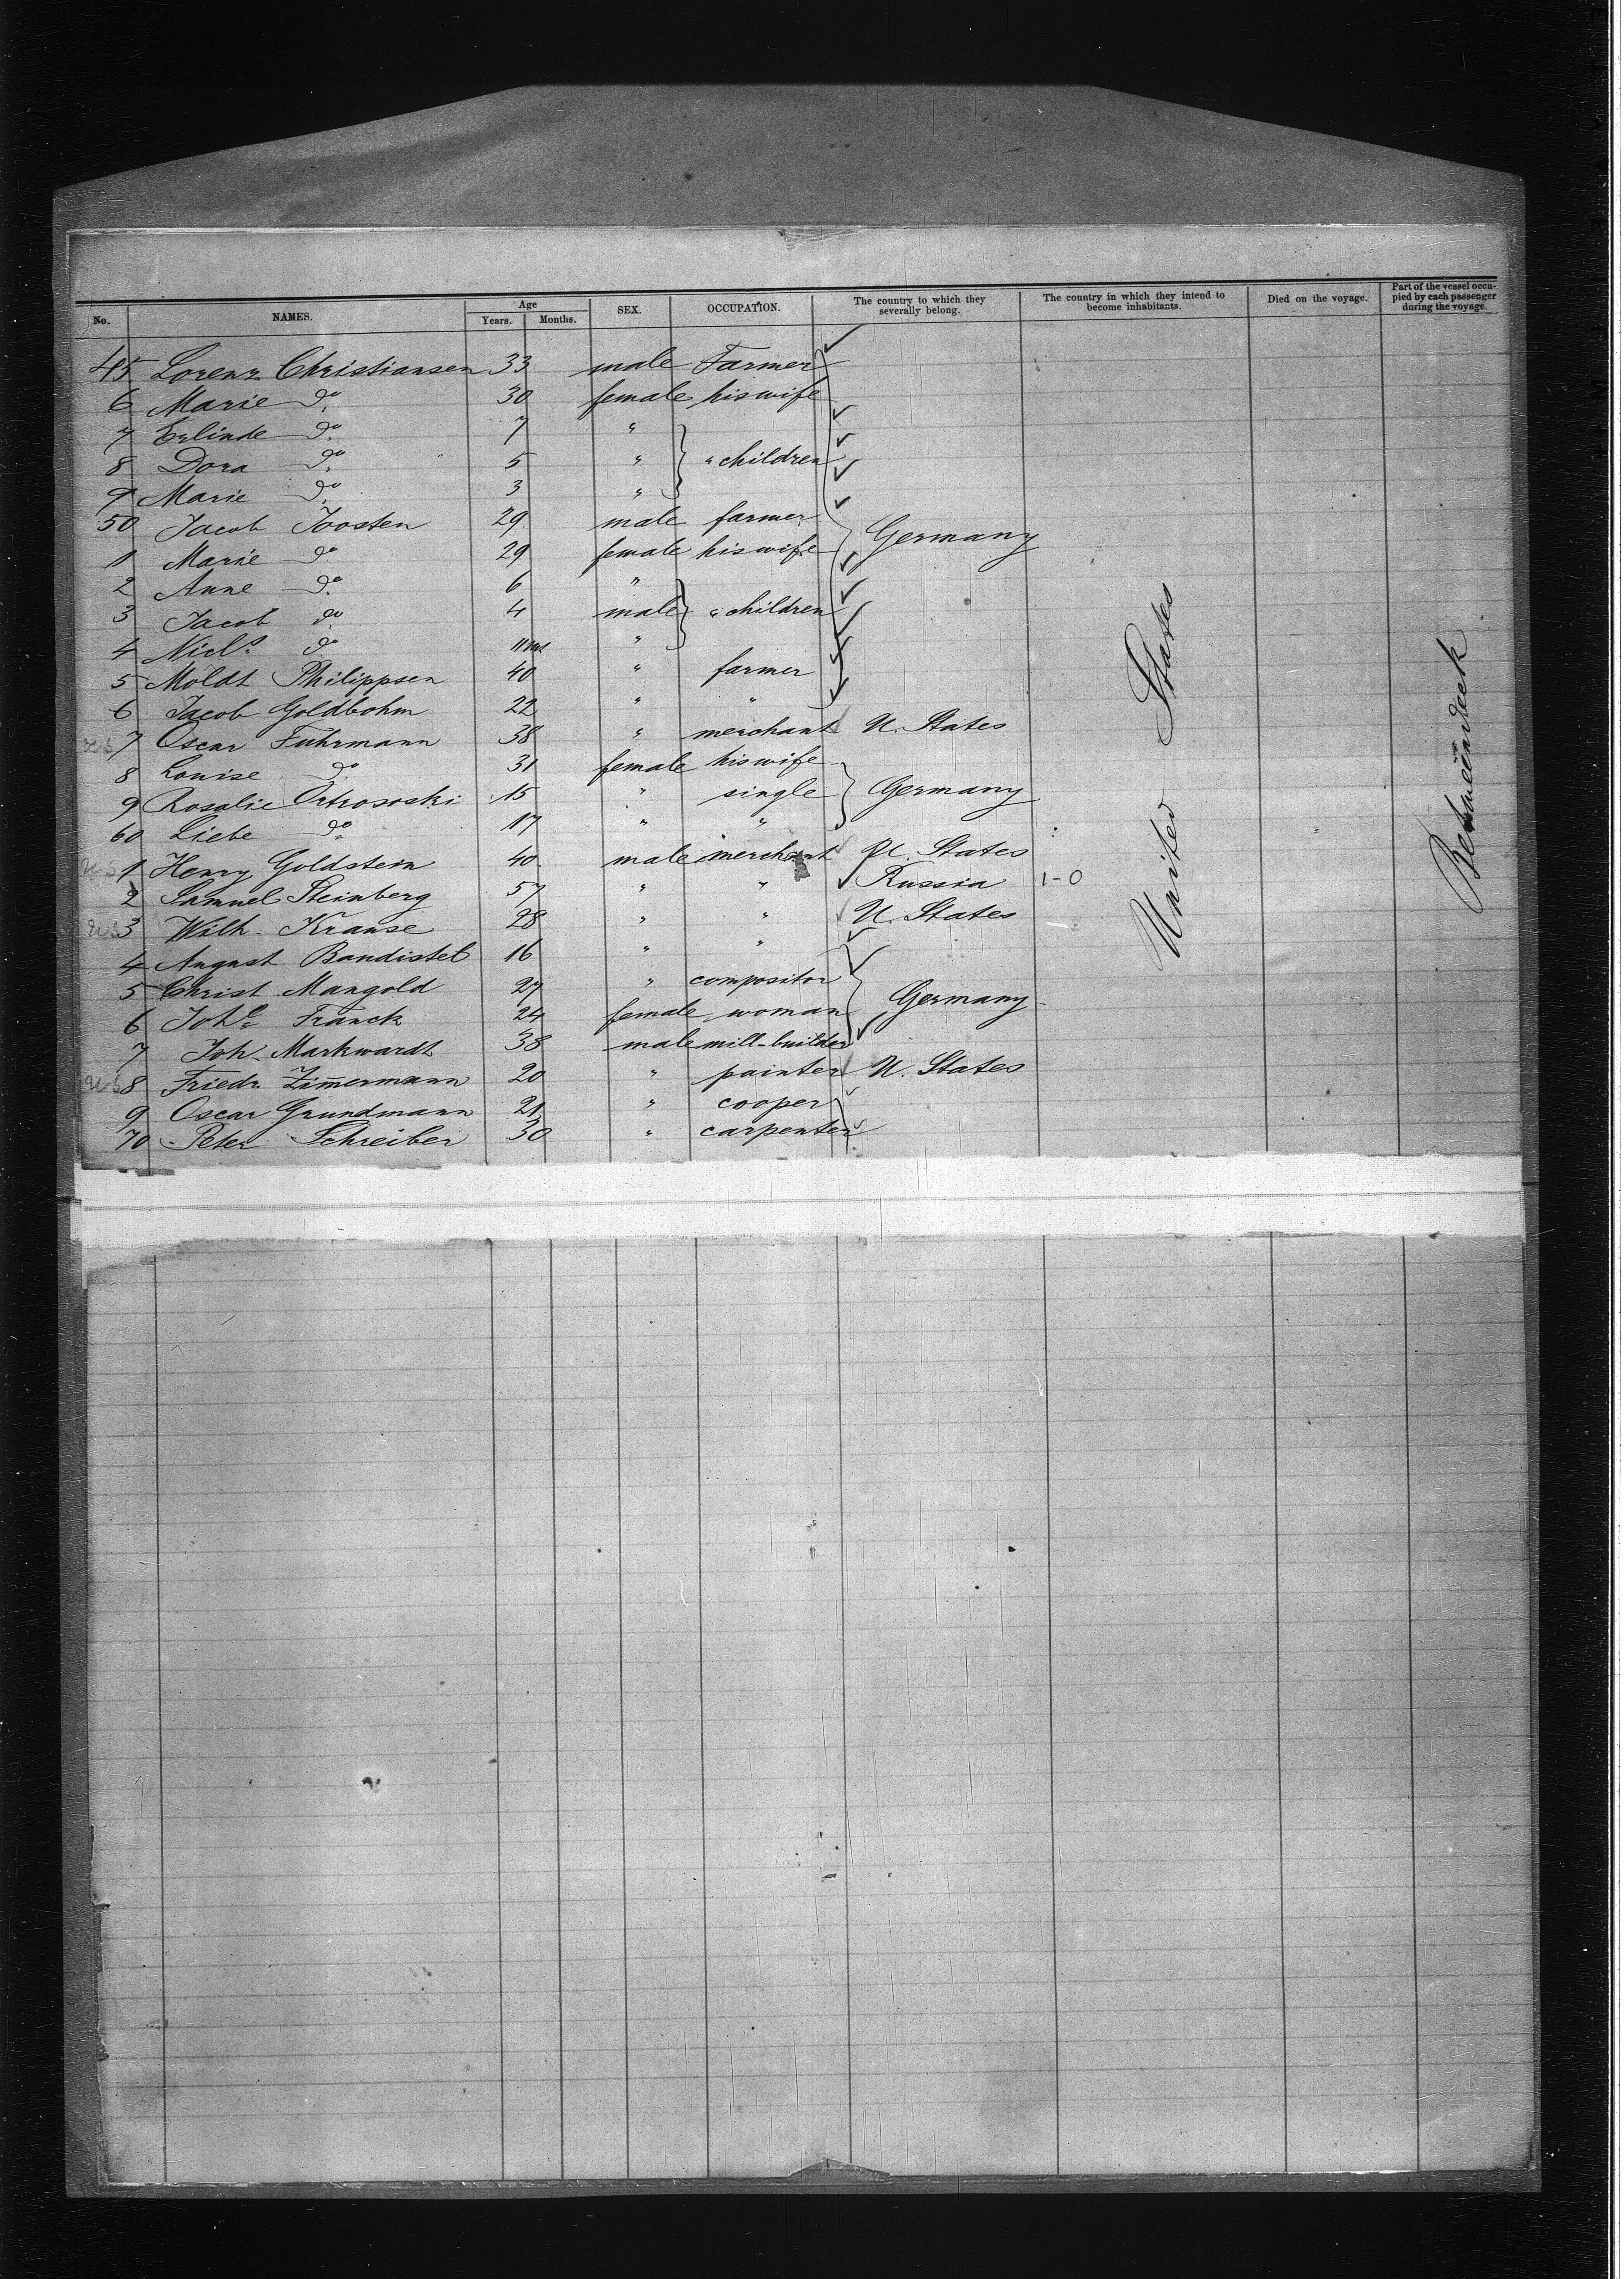 No. NAMES. Age Years. Months. SEX. OCCUPATION. The country to which they severally belong. The country in which they intend to become inhabitants. Died on the voyage. Part of the vessel occupied by each passenger during the voyage.
45 Lorenz Christiansen 33 male Farmer
6 Marie do 30 female his wife
7 Erlinde do 7 "
8 Dora do 5 " " children
9 Marie do 3 "
50 Jacob Joosten 29 male farmer Germany
1 Marie do 29 female his wife
2 Anne do 6 "
3 Jacob do 4 male " children
4 Nicls do 11 ms "
5 Moldt Philippsen 40 " farmer
6 Jacob Goldbohm 22 " "
U S 7 Oscar Fuhrmann 38 " merchant U. States
8 Louise do 31 female his wife
9 Rosalie 15 " single Germany
60 Liebe do 17 " "
U S 1 Henry Goldstein 40 male merchant U. States
2 Samuel Steinberg 57 " " Russia 1-0
U S 3 Wilh. Krause 28 " " U. States
4 August Bandistel 16 " "
5 Christ. Mangold 27 " compositor
6 Franck 24 female woman Germany
7 Joh. Markwardt 38 male mill-builder
U S 8 Friedr. Zimmermann 20 " painter U. States
9 Oscar Grundmann 21 " cooper
70 Peter Schreiber 30 " carpenter
United States
Betweendeck